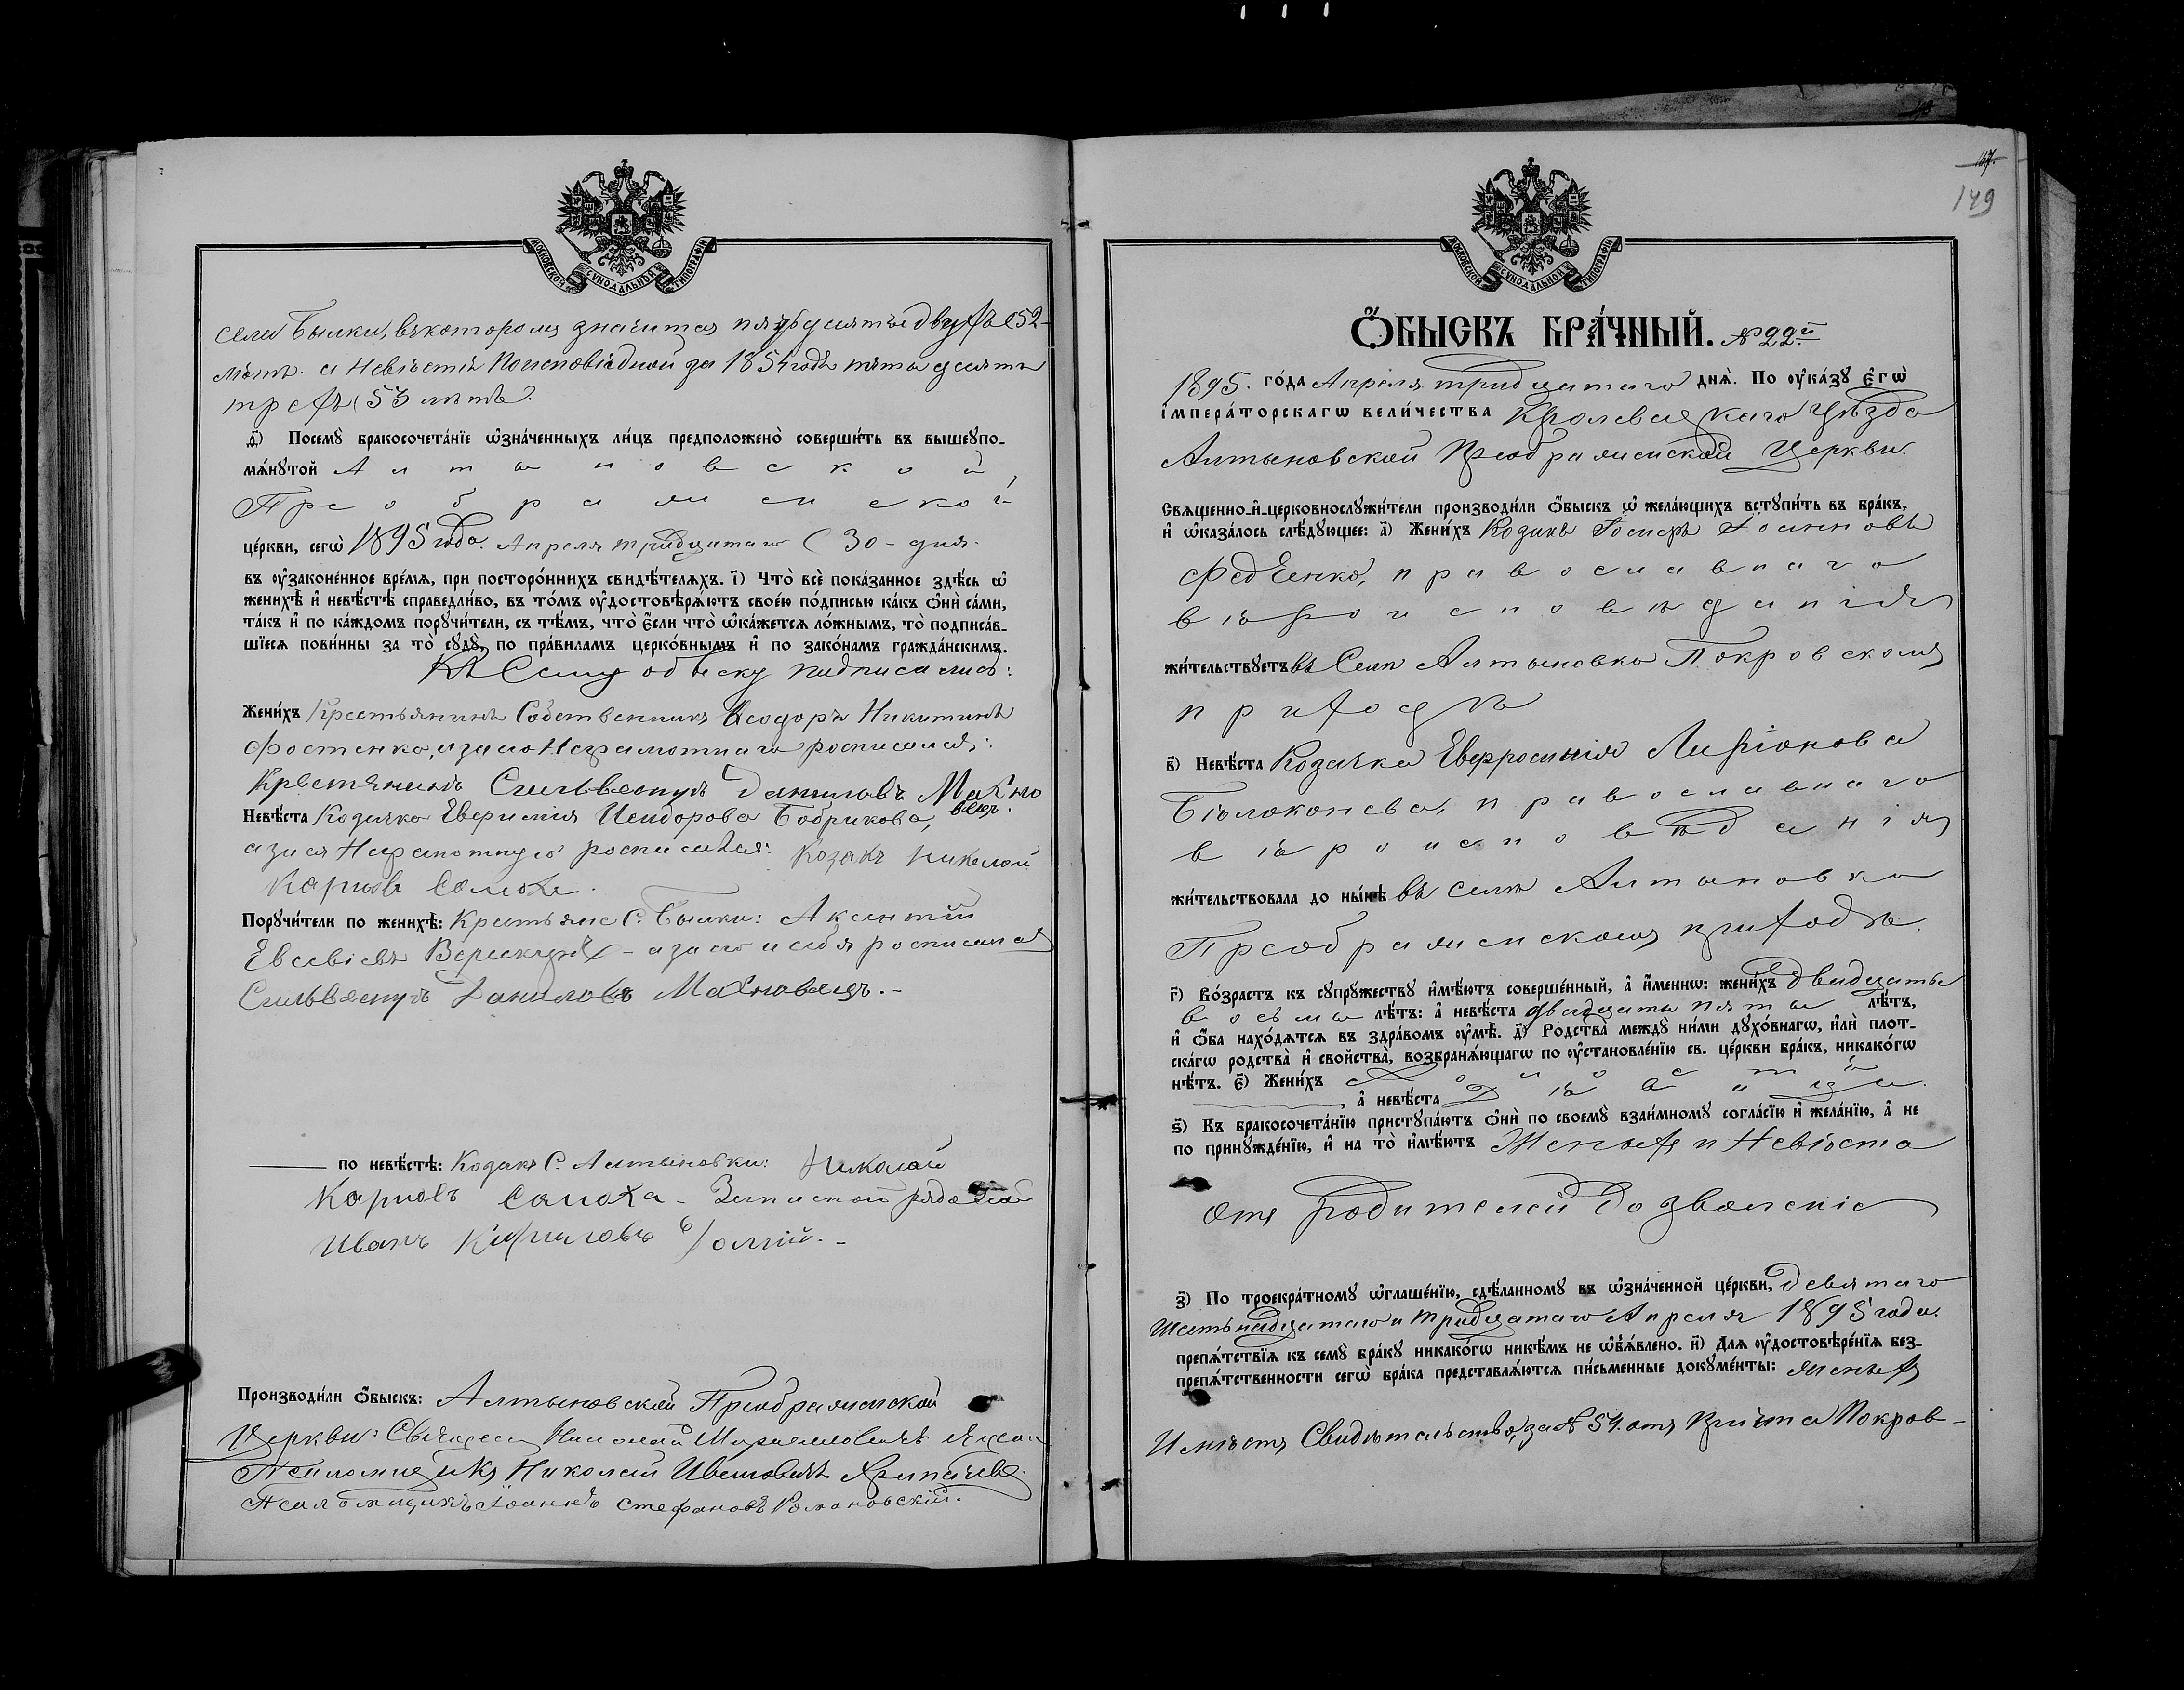 МОСКОВСКОЙ СУНОДАЛЬНОЙ ТИПОГРАФІИ
села Былки, въ котором значится пятьдесятъ двухъ (52-
лѣтъ. а Невѣстѣ по исповѣдной за 1854 годъ пятьдесятъ
трехъ (53 лѣтъ).
д҃) Посемꙋ бракосочета́нїе ѡ҆зна́ченныхъ ли́цъ предположено̀ соверши́ть въ вышеꙋпо-
мѧ́нꙋтой Алтыновской,
Преображенской
це́ркви, сегѡ̀ 1895 года. Апреля тридцатаго (30 - дня.
въ ᲂу҆законе́нное вре́мѧ, при посторо́ннихъ свидѣ́телѧхъ. і҃) Что̀ всѐ пока́занное здѣ́сь ѡ҆
женихѣ̀ и҆ невѣ́стѣ справедли́во, въ то́мъ ᲂу҆достовѣрѧ́ютъ свое́ю по́дписью ка́къ ѻ҆нѝ са́ми,
та́къ и҆ по ка́ждомъ порꙋчи́тели, съ тѣ́мъ, что̀ є҆́сли что̀ ѡ҆ка́жетсѧ ло́жнымъ, то̀ подписа́в-
шїесѧ пови́нны за то̀ сꙋдꙋ̀, по пра́виламъ церко́внымъ и҆ по зако́намъ гражда́нскимъ.
Къ Сему обыску подписались:
Жени́хъ Крестьянинъ Собственникъ Ѳеодоръ Никитинъ
Фостенко, а за его Неграмотнаго росписался:
Крестянинъ Сильвестръ Даниловъ Махно
вецъ.
Невѣ́ста Козачка Евфимия Исидорова Бобрикова,
а за ея Неграмотную росписался: Козакъ Николай
Карповъ Солоха.
Порꙋчи́тели по женихѣ̀: Крестьяне С. Былки: Аксентий
Евсевіевъ - а за его и себя росписался
Сильвестръ Даниловъ Махновецъ. -
по невѣ́стѣ: Козакъ С. Алтыновки: Николай
Карповъ Солоха - Запасной рядовой
Иванъ Кириловъ
Производи́ли ѻ҆́быскъ: Алтыновской Преображенской
Церкви: Священ Николай
Псаломщикъ Николай Ивановичъ
Псаломщикъ Іоаннъ Стефановъ Романовскій.
147.
149
МОСКОВСКОЙ СУНОДАЛЬНОЙ ТИПОГРАФІИ
Ѻ҆́БЫСКЪ БРА́ЧНЫЙ. № 22й
1895. го́да Апреля тридцатаго днѧ̀. По ᲂу҆ка́зꙋ є҆гѡ̀
і҆мпера́торскагѡ вели́чества Кролевецкаго Уѣзда
Алтыновской Преображенской Церкви.
Свѧще́нно-и҆-церковнослꙋжи́тели производи́ли ѻ҆́быскъ ѡ҆ жела́ющихъ встꙋпи́ть въ бра́къ,
и҆ ѡ҆каза́лось слѣ́дꙋющее: а҃) Жени́хъ Козакъ Іосифъ Іоанновъ
Федченко, православнаго
вѣроисповѣданія
жи́тельствꙋетъ въ Селѣ Алтыновка Покровскомъ
приходѣ
в҃) Невѣ́ста Козачка Евфросинія Ларіонова
Бѣлоконева, православнаго
вѣроисповѣданія
жи́тельствовала до ны́нѣ въ селѣ Алтыновка
Преображенскомъ приходѣ.
г҃) Во́зрастъ къ сꙋпрꙋ́жествꙋ и҆мѣ́ютъ соверше́нный, а҆ и҆́меннѡ: жени́хъ двадцать
восемь лѣ́тъ: а҆ невѣ́ста двадцать пять лѣ́тъ,
и҆ ѻ҆́ба нахо́дѧтсѧ въ здра́вомъ ᲂу҆мѣ̀. д҃) Родства̀ междꙋ̀ ни́ми дꙋхо́внагѡ, и҆лѝ плот-
ска́гѡ родства̀ и҆ сво́йства, возбранѧ́ющагѡ по ᲂу҆становле́нїю св. це́ркви бра́къ, никако́гѡ
нѣ́тъ. є҃) Жени́хъ Холостъ
, а҆ невѣ́ста Дѣвица.
ѕ҃) Къ бракосочета́нїю пристꙋпа́ютъ ѻ҆нѝ по своемꙋ̀ взаи́мномꙋ согла́сїю и҆ жела́нїю, а҆ не
по принꙋжде́нїю, и҆ на то̀ и҆мѣ́ютъ Женихъ и Невѣста
отъ родителей дозволеніе
з҃) По троекра́тномꙋ ѡ҆глаше́нїю, сдѣ́ланномꙋ въ ѡ҆зна́ченной це́ркви, девятаго
шестьнадцатаго и тридцатаго Апреля 1895 года.
препѧ́тствїѧ къ семꙋ̀ бра́кꙋ никако́гѡ никѣ́мъ не ѡ҆б̾ѧ́влено. и҃) Длѧ ᲂу҆достовѣре́нїѧ без-
препѧ́тственности сегѡ̀ бра́ка представлѧ́ютсѧ пи́сьменные докꙋме́нты: женихъ
Имѣетъ Свидѣтельство, за № 54. отъ Причта Покров-